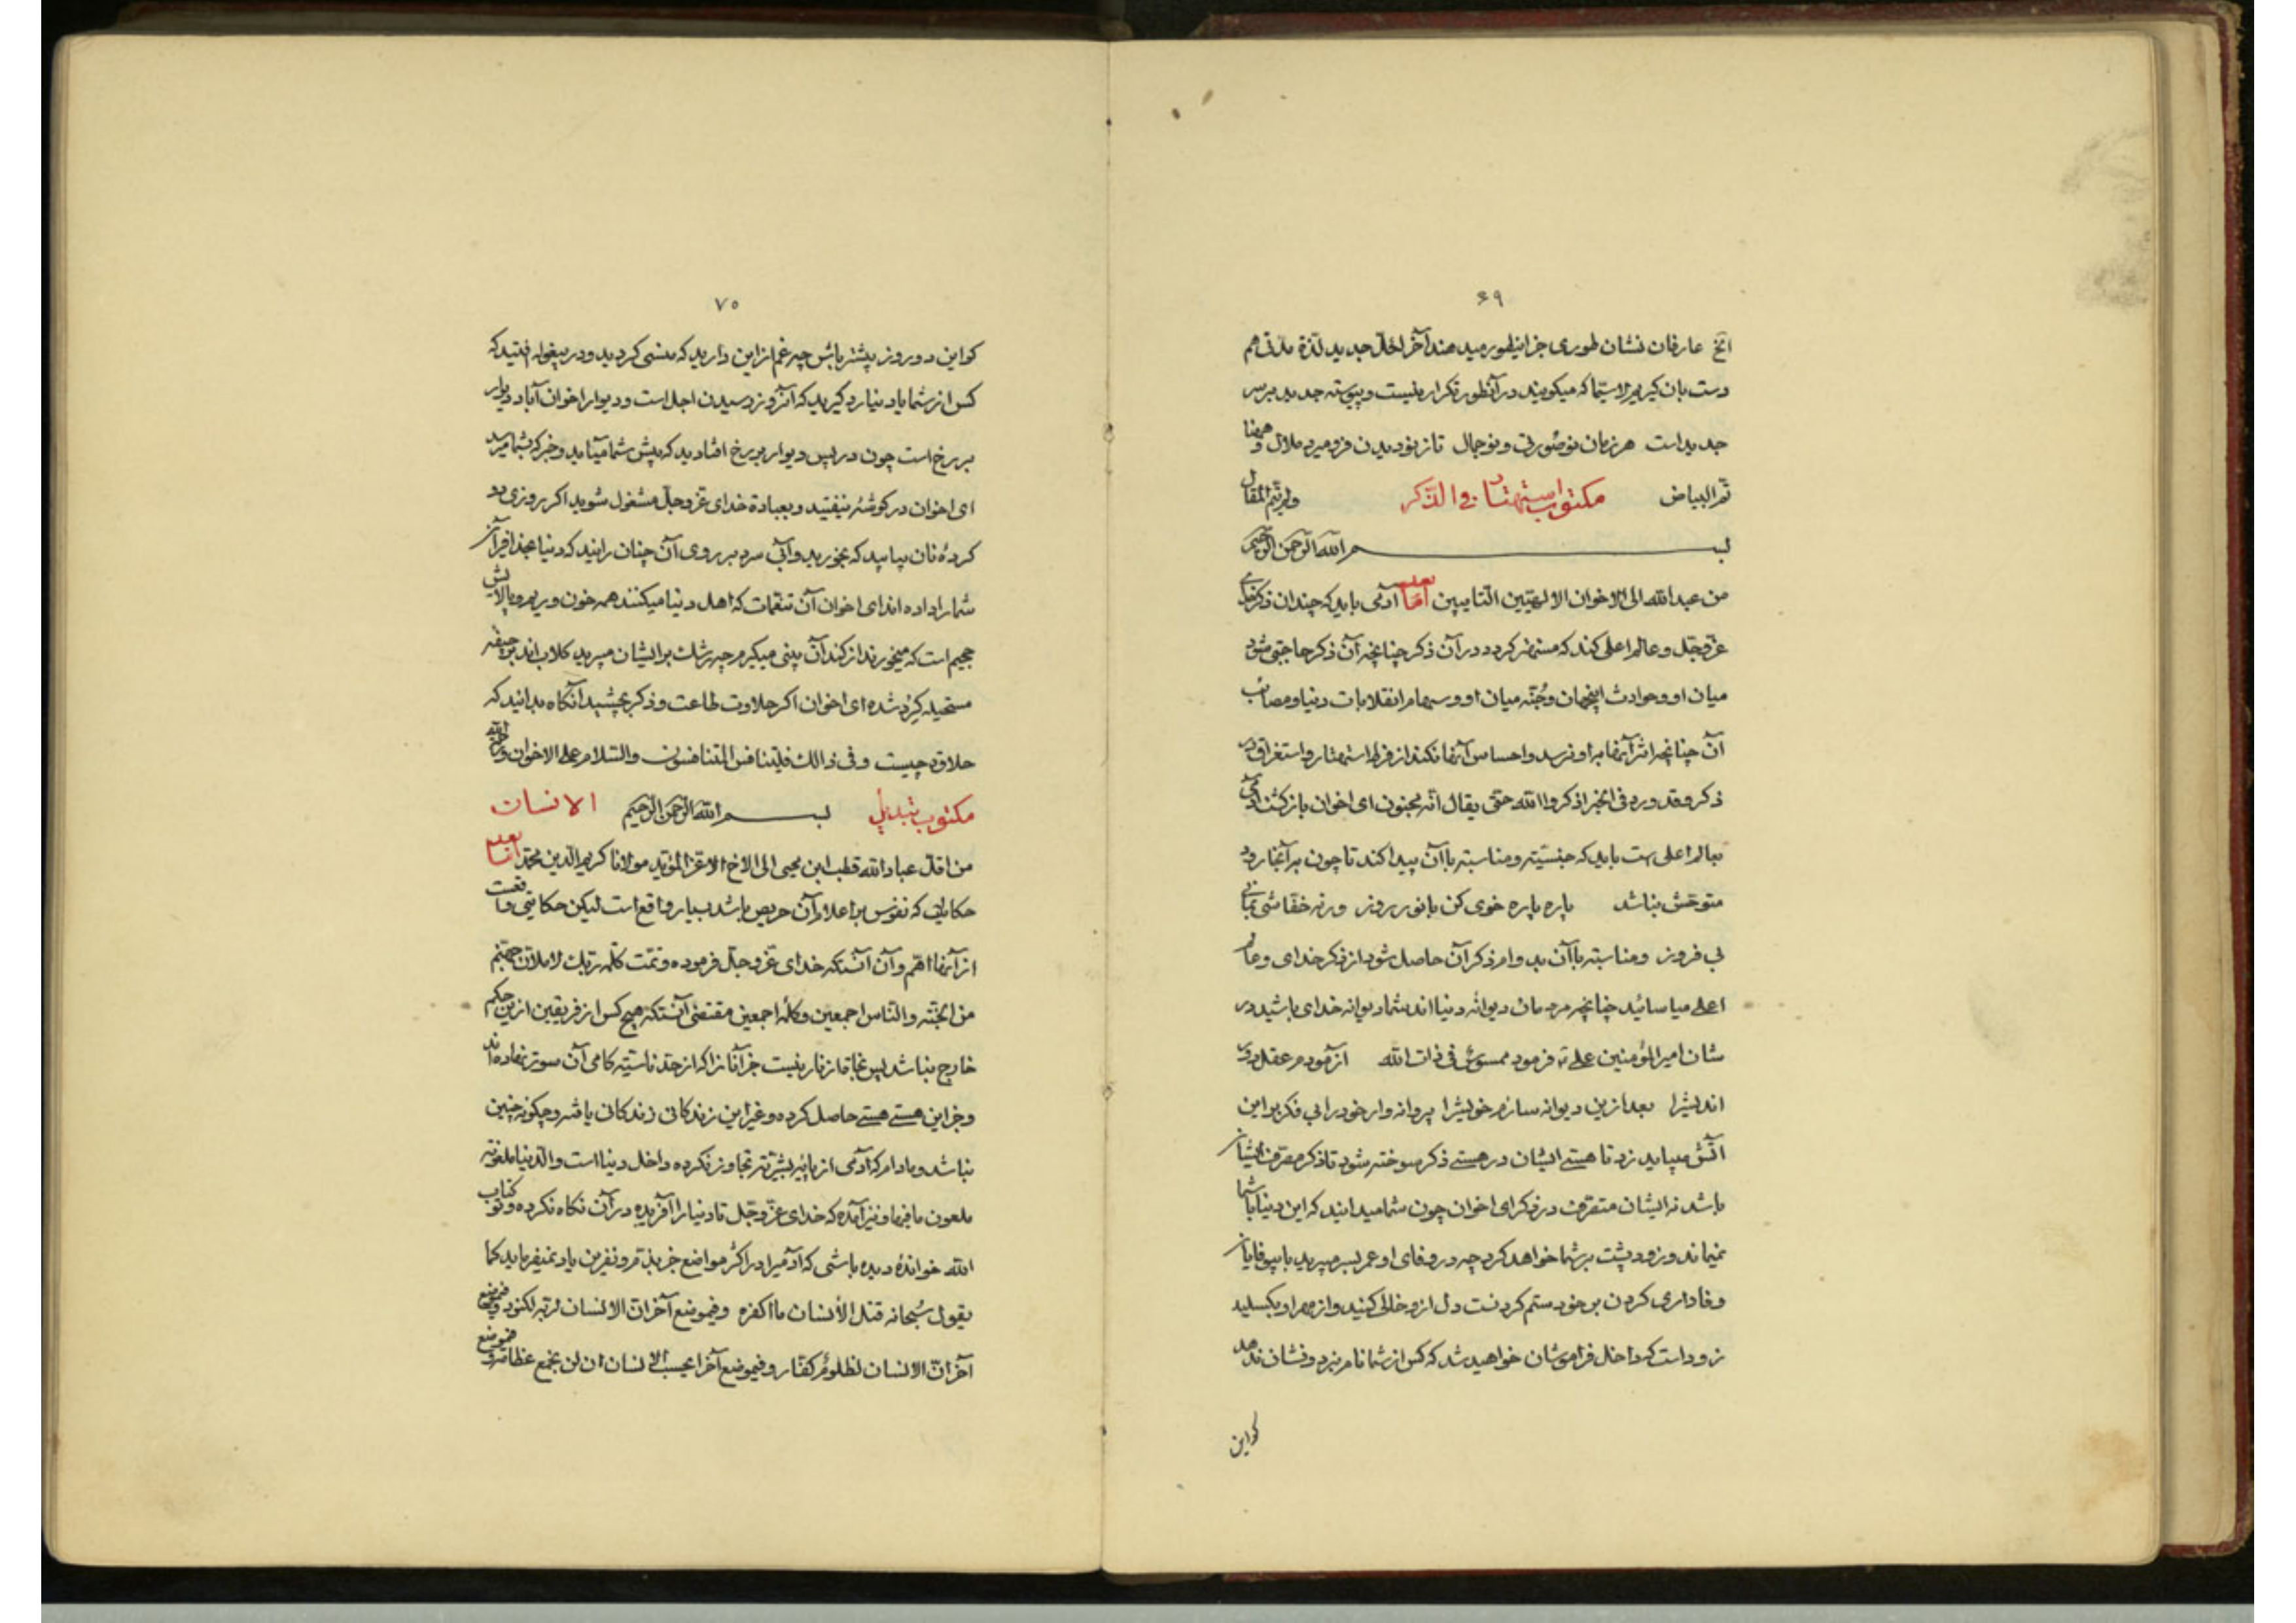 ۶۹
الخ عارفان نشان طوری جز اینطور میدهند آخر لکل جدید لذة مدتی هم
دست بان کیریم لاسیما که میکویند در آنطور تکرار نیست و پیوسته جدید بر سر
جدید است هر زمان نو صورتی و نو جمال تا ز نو دیدن فرو میرد ملال و ههنا
تم البیاض مکتوب استهتار فی الذکر ولم یتم المقال
بسم الله الرحمن الرحیم
من عبد الله الی الاخوان الالهیین التایبین اما بعد آدمی باید که چندان ذکر خدای
عز و جل و عالم اعلی کند که مستهتر کردد در آن ذکر چنانچه آن ذکر حاجبی شود
میان او و حوادث اینجهان و جنه میان او و سهام انقلابات دنیا و مصائب
آن چنانچه اثر آنها براو نرسد و احساس آنها نکند از فرط استهتار و استغراق در
ذکر و قد ورد فی الخبر اذکروا الله حتی یقال انه مجنون ای اخوان بازکشت آدمی
بعالم اعلی است باید که جنسیتی و مناسبتی باآن پیدا کند تا چون برآنجا رود
متوحش نباشد پاره پاره خوی کن با نور روز ورنه خفاشی بمانی
بی فروز و مناسبتی باآن بدوام ذکر آن حاصل شود از ذکر خدای و عالم
اعلی میاسائید چنانچه مردمان دیوانه دنیااند شما دیوانه خدای باشید در
شان امیر المؤمنین علی ع فرمود ممسوس فی ذات الله آزمودم عقل دور
اندیش را بعد ازین دیوانه سازم خویش را پروانه وار خود را بی فکر براین
آتش میباید زد تا هستی ایشان در هستی ذکر سوخته شود تا ذکر متصرف ایشان
باشد نه ایشان متصرف در ذکر ای اخوان چون شما میدانید که این دنیا با شما
نمیماند و زود پشت برشما خواهد کرد چه در وفای او عمر بسر میبرید با بیوفایان
وفاداری کردن بر خود ستم کردنست دل ازو خالی کنید و از مهر او بکسلید
زود است که داخل فراموشان خواهید شد که کس از شما نام نبرد و نشان ندهد
کو این
۷۰
کو این دو روز پیشتر باش چه غم از این دارید که منسی کردید و در بیغوله افتید که
کس از شما یاد نیارد کیرید که آنروز رسیدن اجل است و دیوار اخوان آباد دیوار
برزخ است چون در پس دیوار برزخ افتادید که پیش شما میآید و خبر که بشما میرسد
ای اخوان در کوشه بیفتید و بعبادة خدای عز و جل مشغول شوید اکر روزی دو
کرده نان بیابید که بخورید و آبی سرد بر روی آن چنان رانید که دنیا بحذافیر آن
شما را داده اند ای اخوان آن تنعمات که اهل دنیا میکنند همه خون و ریم و پالایش
جحیم است که میخورند از کند آن بینی میکیرم چه رشک برایشان میبرید کلاب اند بر جیفه
مستحیله کرد شده ای اخوان اکر حلاوت طاعت و ذکر بچشید آنکاه بدانید که
حلاوة چیست و فی ذالک فلیتنافس المتنافسون والسلام علی الاخوان و رحمة الله
مکتوب تبدیل بسم الله الرحمن الرحیم الانسان
من اقل عباد الله قطب ابن محیی الی الاخ الاعز المؤید مولانا کریم الدین محمد اما بعد
حکایاتی که نفوس براعلام آن حریص باشد بسیار واقع است لیکن حکایتی واقعست
از آنها اهم و آن آنستکه خدای عز و جل فرموده و تمت کلمه ربک لاملأن جهنم
من الجنة والناس اجمعین و کلمه اجمعین مقتضی آنستکه هیچ کس از فریقین از این حکم
خارج نباشد پس نجاة از نار نیست جز آنانرا که از حد ناسیتی کامی آن سوتر نهاده اند
و جز این هستی هستی حاصل کرده و غیر این زندکانی زندکانی یافته و چکونه چنین
نباشد و مادام که آدمی از پایه بشریتی تجاوز نکرده داخل دنیا است والدنیا ملعونة
ملعون مافیها و نیز آمده که خدای عز و جل تا دنیا را آفریده در آن نکاه نکرده و تو کتاب
الله خوانده دیده باشی که آدمیرا در اکثر مواضع جز بذم و نفرین یاد نمیفرماید کما
یقول سبحانه قتل الانسان ما اکفره و فیموضع آخر ان الانسان لربه لکنود و فیموضع
آخر ان الانسان لظلوم کفار و فیموضع آخر ایحسب الانسان ان لن نجمع عظامه و فیموضع